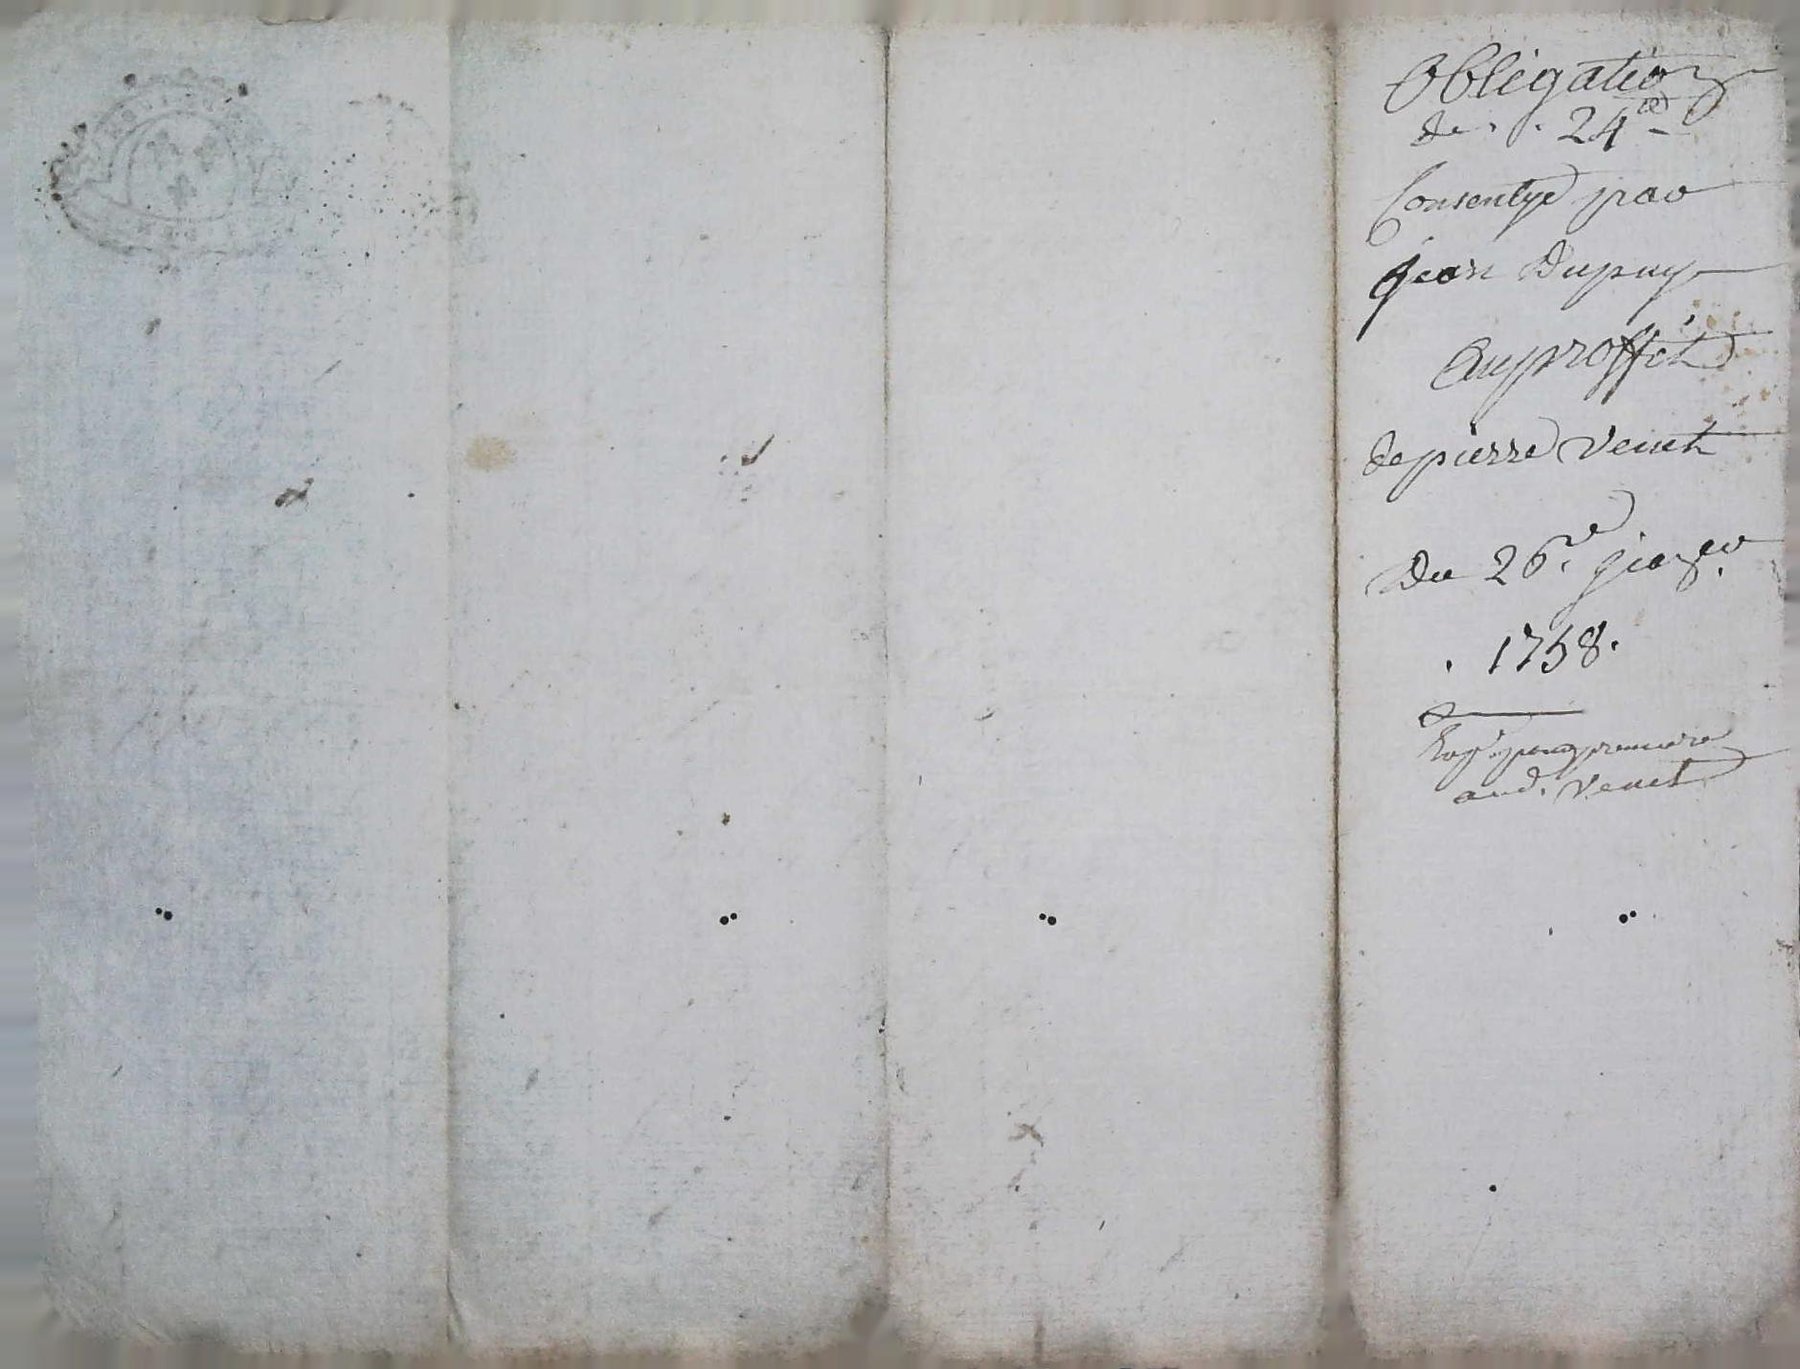 Obligation
de . . 24 ₶
Consentye par
Jean Dupuy
Auproffit
depierre Venet
Du 26.e
. 1758.
premiere
aud. Venet